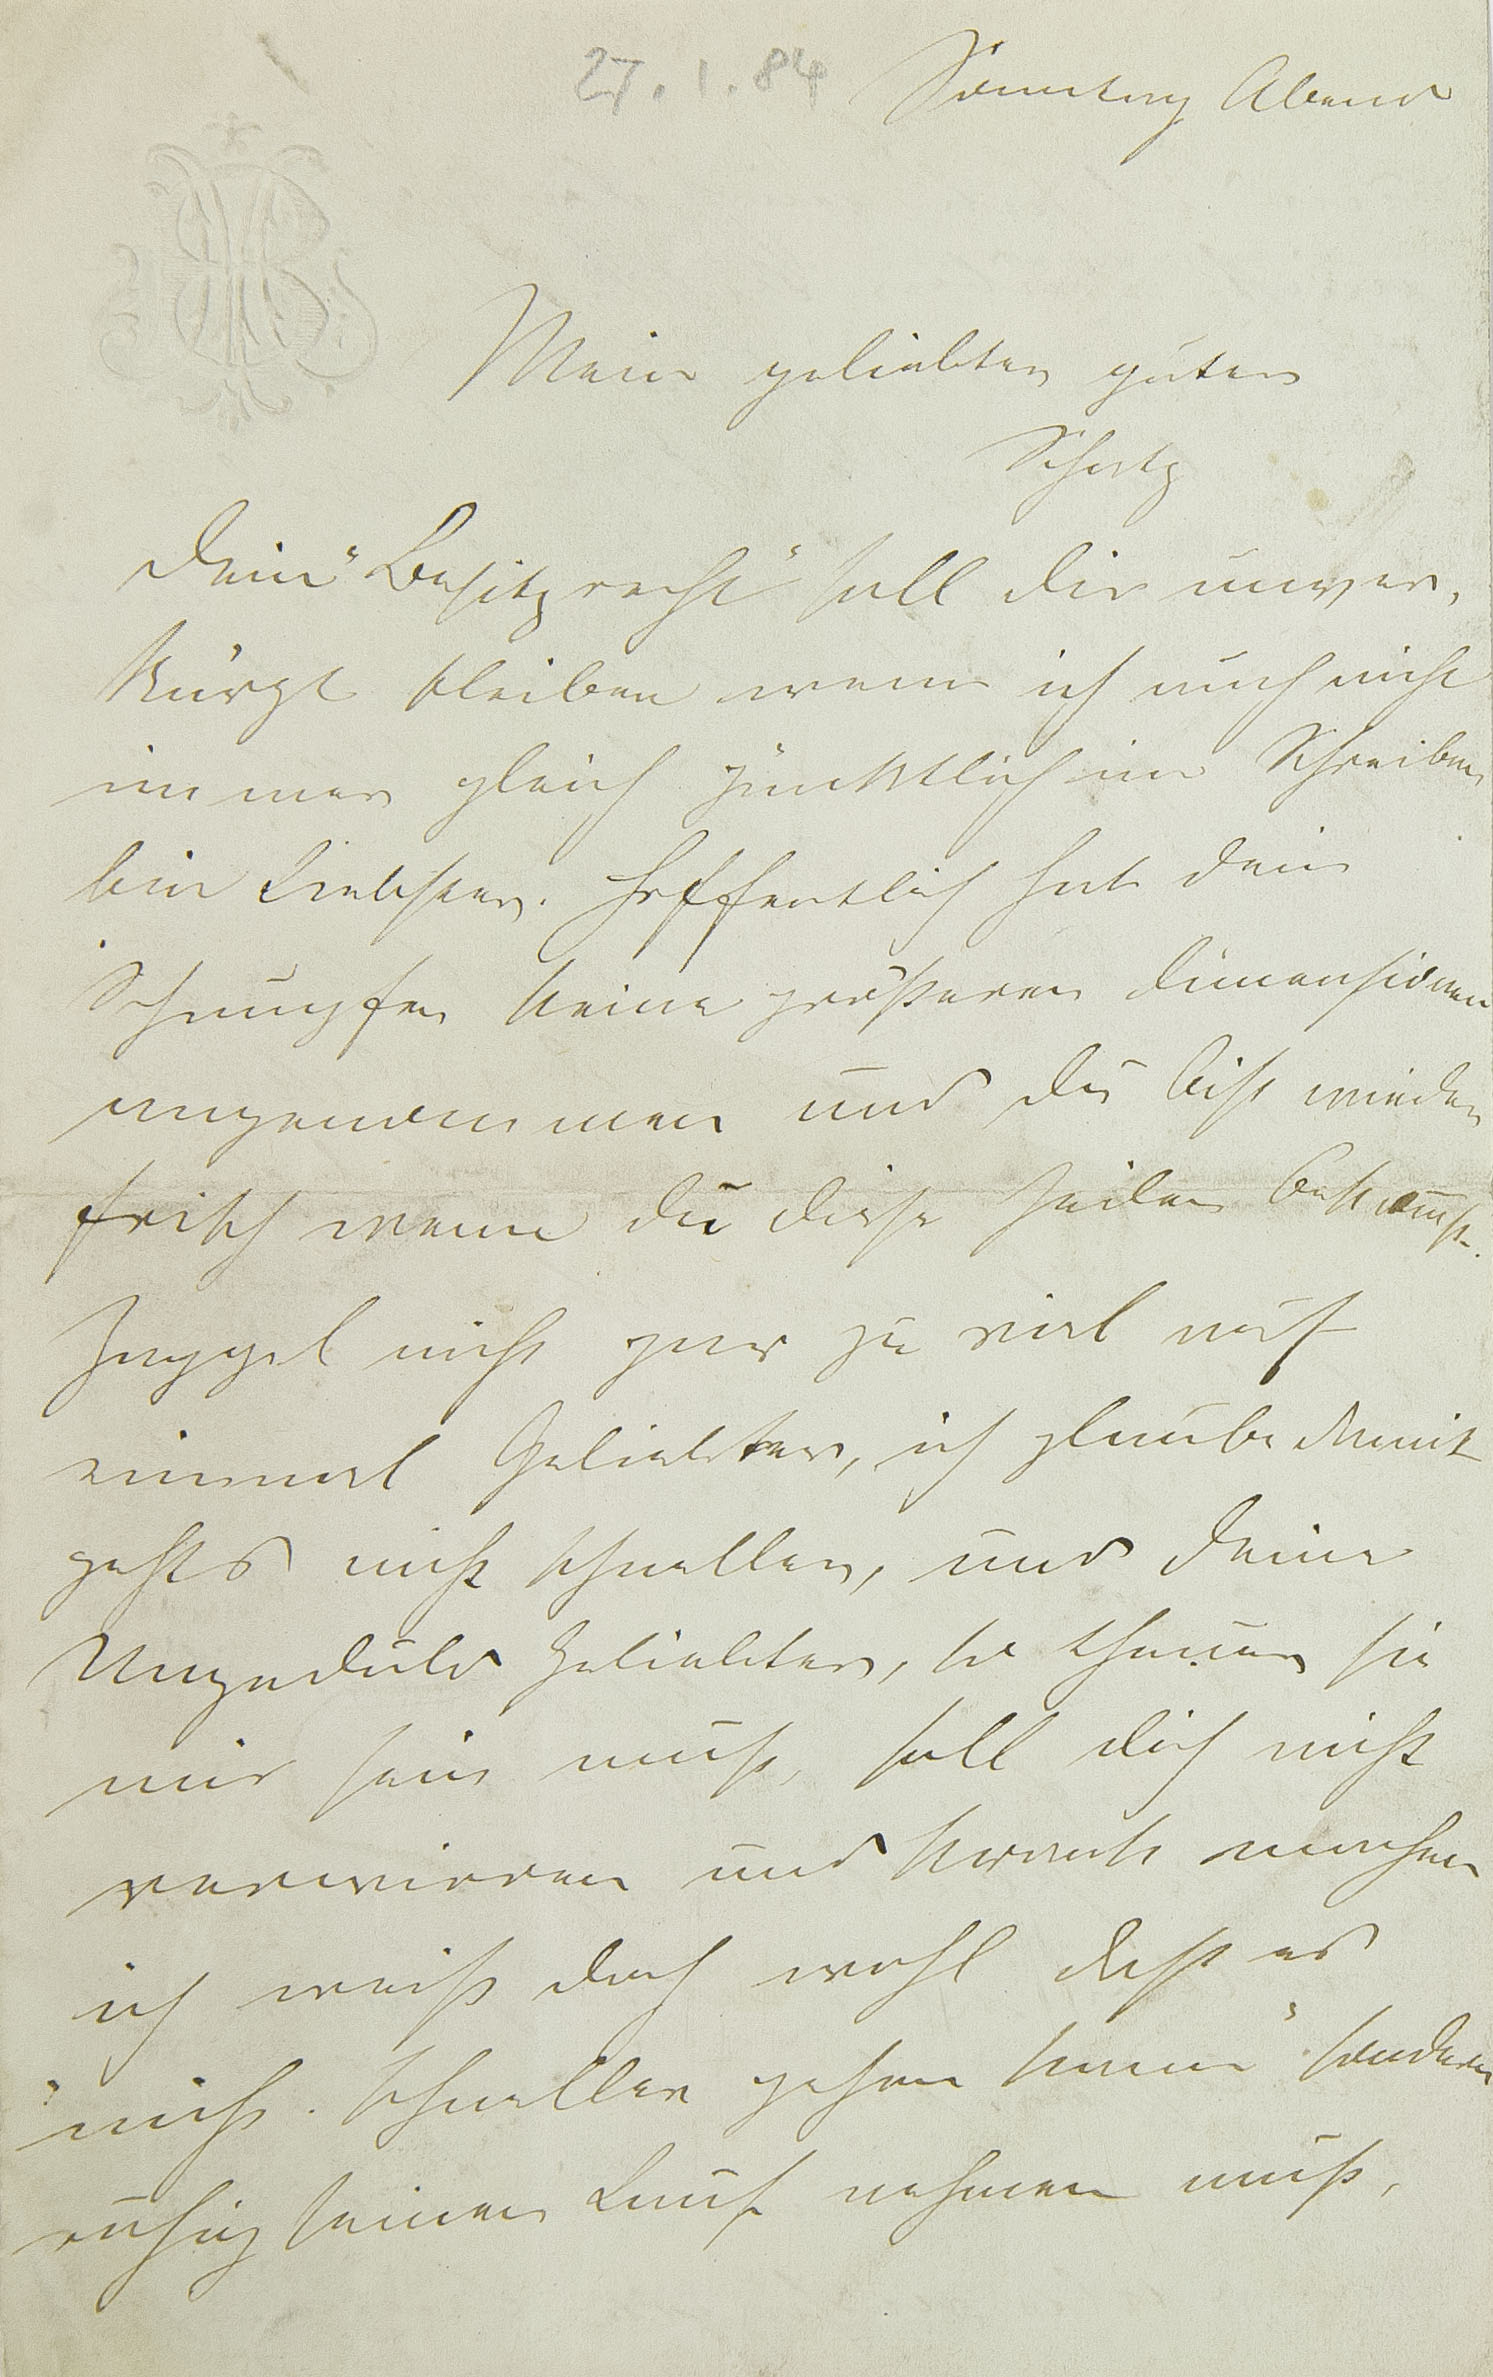 27.1.84 Sonntag Abend
MB
Mein geliebter guter
Schatz
Dein "Besitzrecht" soll dir unver,
kürzt bleiben wenn ich auch nicht
immer gleich pünktlich im Schreiben
bin Liebster. Hoffentlich hat dein
Schnupfen keine größeren Dimensionen
angenommen und du bist wieder
frisch wenn du diese Zeilen bekommst.
Zappel nicht gar zu viel auf
einmal Geliebter, ich glaube damit
gehts nicht schneller, und deine
Ungeduld Geliebter, so theuer sie
mir sein muß, soll dich nicht
verwirren und krank machen
ich weiß doch wohl daß es
"nicht schneller gehen kann" sondern
ruhig seinen Lauf nehmen muß,